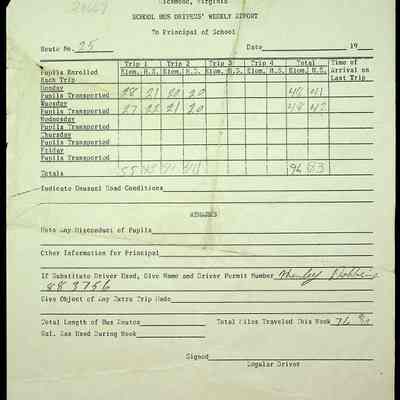 Richmond, Virginia
SCHOOL BUS DRIVERS' WEEKLY REPORT
To Principal of School
Route No. 25 Date 19
Trip 1 Trip 2 Trip 3 Trip 4 Total Time of
Pupils Enrolled Elem. H.S. Elem. H.S. Elem. H.S. Elem. H.S. Elem. H.S. Arrival on
Each Trip Last Trip
Monday
Pupils Transported 28 21 20 20 48 41
Tuesday
Pupils Transported 27 22 21 20 48 42
Wednesday
Pupils Transported
Thursday
Pupils Transported
Friday
Pupils Transported
Totals 55 43 41 96 83
Indicate Unusual Road Conditions
REMARKS
Note Any Misconduct of Pupils
Other Information for Principal
If Substitute Driver Used, Give Name and Driver Permit Number Robbins
883756
Give Object of Any Extra Trip Made
Total Length of Bus Routes Total Miles Traveled This Week 76
Gal. Gas Used During Week
Signed
Regular Driver